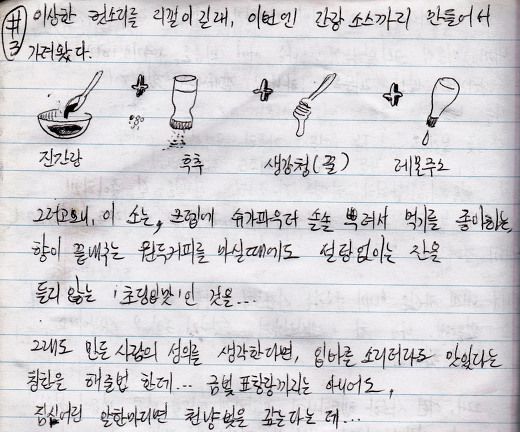 #3
이상한 컷소리를 리필이길래, 이번엔 간장 소스까지 만들어서
가져왔다.
+ + +
진간장 후추 생강청(꿀) 레몬주스
그러고보니, 이 소는, 크림에 슈가파우더 솔솔 뿌려서 먹기를 좋아하는
향이 끝내주는 원두커피를 마실때에도 설탕없이는 잔을
들지 않는 '초딩입맛'인 것을...
그래도 만든 사람의 성의를 생각한다면, 입바른 소리더라도 맛있다는
칭찬을 해줄법 한데... 금빛 표창장까지는 아니어도,
진심어린 말한마디면 천냥빚을 갚는다는 데...